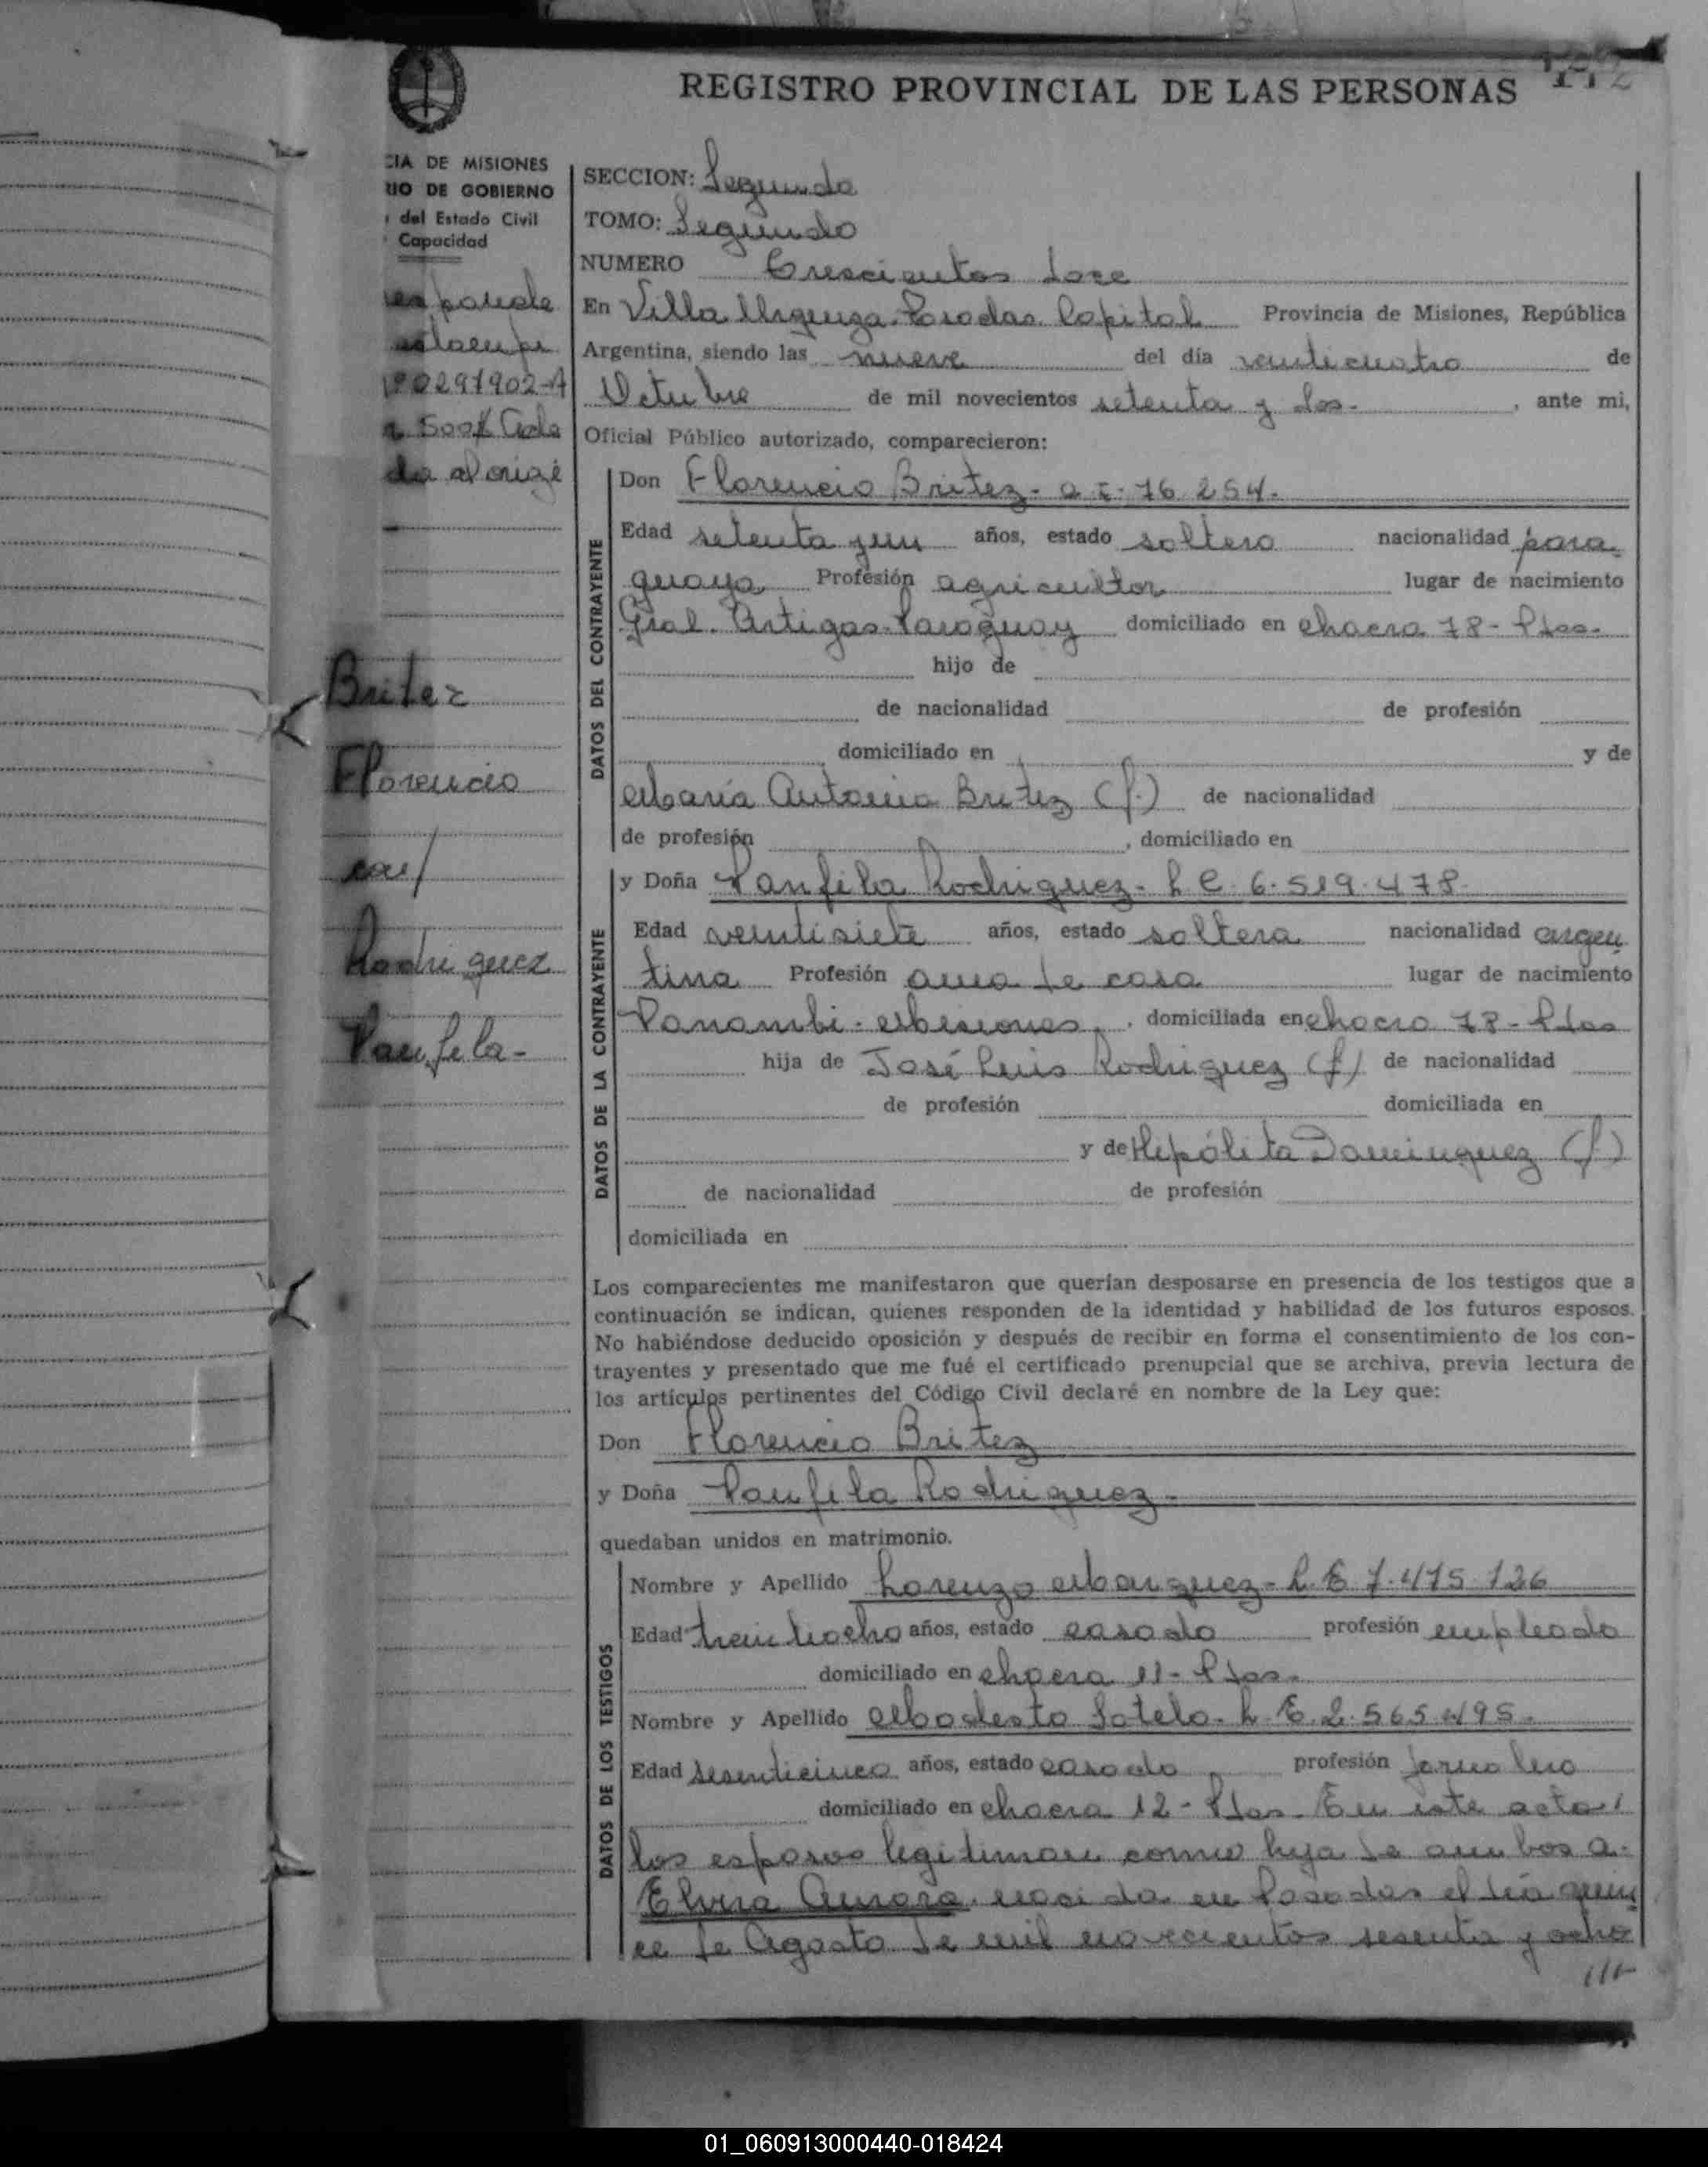 REGISTRO PROVINCIAL DE LAS PERSONAS
CIA DE MISIONES
RIO DE GOBIERNO
del Estado Civil
Capacidad
0291902-A
da al orige
Britez
Florencio
con/
Rodriguez
Panfila-
SECCION: Segunda
TOMO: Segundo
NUMERO Trescientos doce
En Villa Urquiza-Posadas Capital Provincia de Misiones, República
Argentina, siendo las nueve del día veinticuatro de
Octubre de mil novecientos setenta y dos- , ante mi,
Oficial Público autorizado, comparecieron:
DATOS DEL CONTRAYENTE
Don Florencio Britez- C.I- 76.254-
Edad setenta y un años, estado soltero nacionalidad para
guaya Profesión agricultor lugar de nacimiento
Gral. Artigas-Paraguay domiciliado en chacra 78- Pdas-
hijo de
de nacionalidad de profesión
domiciliado en y de
María Antonia Britez (f) de nacionalidad
de profesión , domiciliado en
DATOS DE LA CONTRAYENTE
y Doña Panfila Rodriguez- L C. 6.519.478-
Edad veintisiete años, estado soltera nacionalidad argen
tina Profesión ama de casa lugar de nacimiento
Panambi-Misiones, domiciliada en chacra 78- Pdas
hija de José Luis Rodriguez (f) de nacionalidad
de profesión domiciliada en
y de Hipólita Dominguez (f)
de nacionalidad de profesión
domiciliada en
Los comparecientes me manifestaron que querían desposarse en presencia de los testigos que a
continuación se indican, quienes responden de la identidad y habilidad de los futuros esposos.
No habiéndose deducido oposición y después de recibir en forma el consentimiento de los con-
trayentes y presentado que me fué el certificado prenupcial que se archiva, previa lectura de
los artículos pertinentes del Código Civil declaré en nombre de la Ley que:
Don Florencio Britez
y Doña Panfila Rodriguez-
quedaban unidos en matrimonio.
DATOS DE LOS TESTIGOS
Nombre y Apellido Lorenzo Marquez- L.E 7.475.126
Edad treintiocho años, estado casado profesión empleado
domiciliado en chacra 11- Pdas-
Nombre y Apellido Modesto Sotelo- L.E. 2.565.495-
Edad sesenticinco años, estado casado profesión jornalero
domiciliado en chacra 12- Pdas- En este acto
los esposos legitiman como hija de ambos a-
Elvira Aurora, nacida en Posadas el día quin
ce de Agosto de mil novecientos sesenta y ocho
///-
01_060913000440-018424